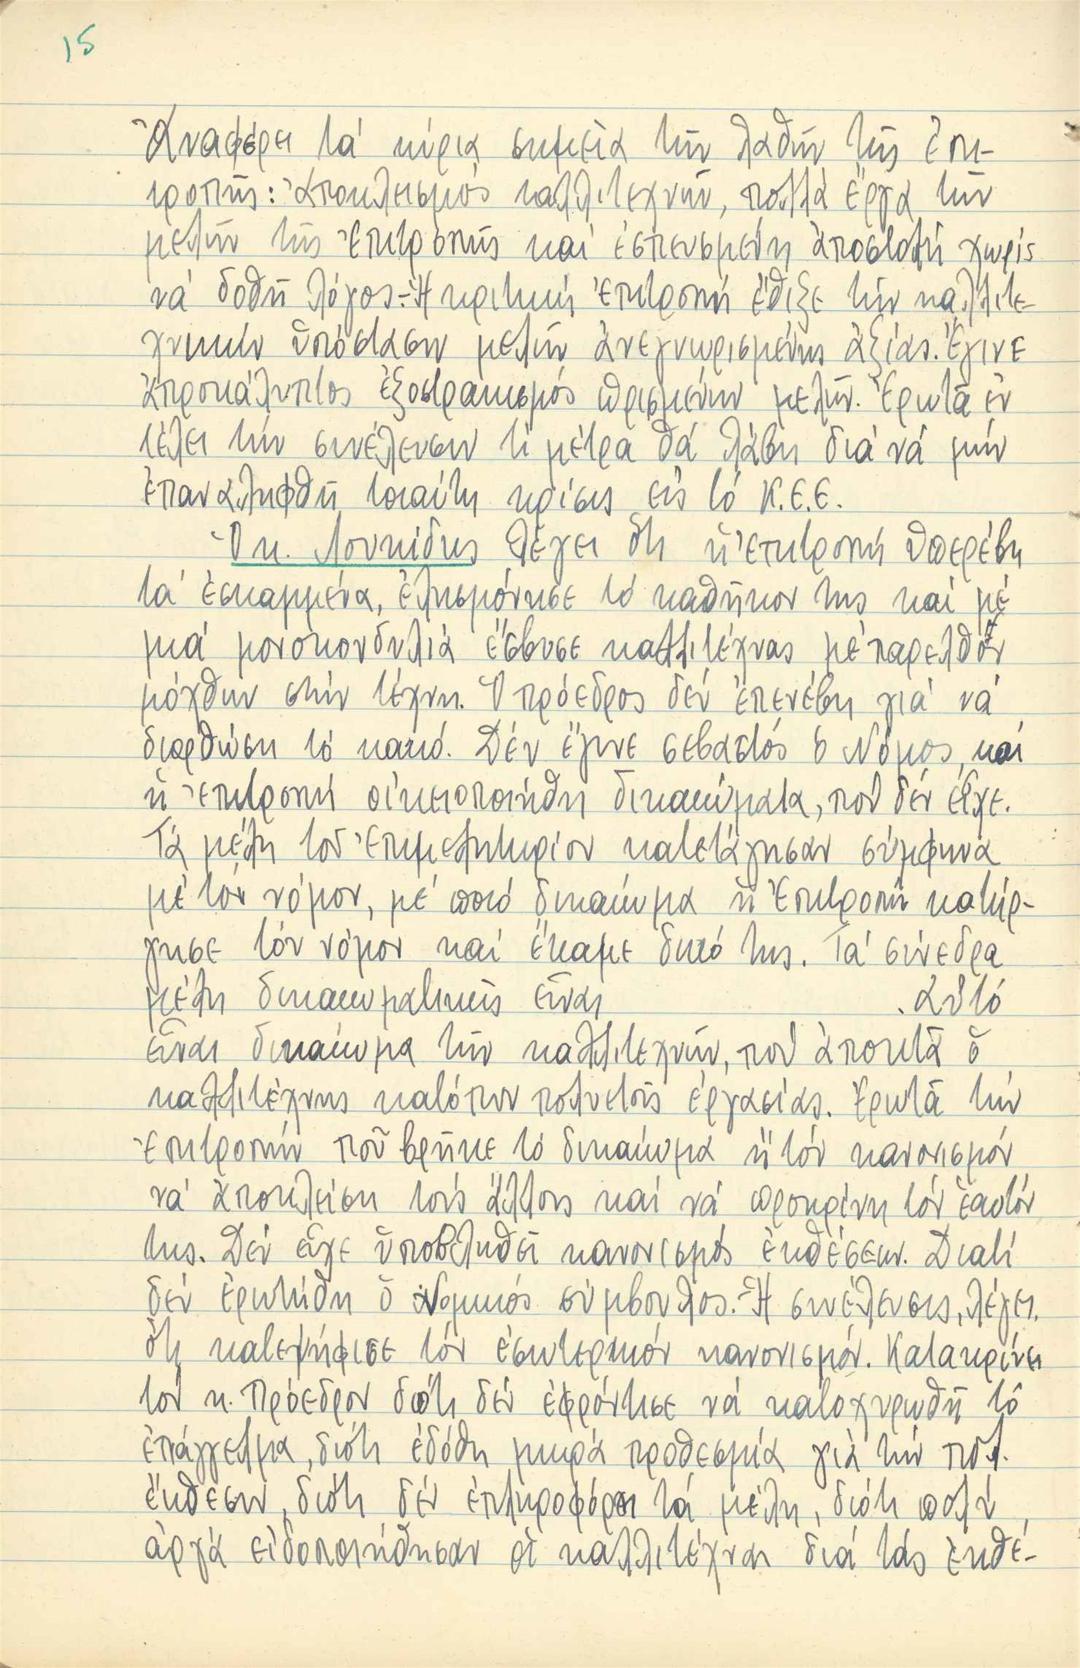 15
Ἀναφέρει τά κύρια σημεῖα τῶν λαθῶν τῆς ἐπι-
τροπῆς: Ἀποκλεισμός καλλιτεχνῶν, πολλά ἔργα τῶν
μελῶν τῆς Ἐπιτροπῆς καί ἐσπευσμένη ἀποστολή χωρίς
νά δοθῆ λόγος.- Ἡ κριτική Ἐπιτροπή ἔθιξε τήν καλλιτε-
χνικήν ὑπόστασιν μελῶν ἀνεγνωρισμένης ἀξίας. Ἔγινε
ἀπροκάλυπτος ἐξοστρακισμός ὡρισμένων μελῶν. Ἐρωτᾶ ἐν
τέλει τήν συνέλευσιν τί μέτρα θά λάβη διά νά μήν
ἐπαναληφθῆ τοιαύτη κρίσις εἰς τό Κ.Ε.Ε.
Ὁ κ. Λουκίδης λέγει ὅτι ἡ ἐπιτροπή ὑπερέβη
τά ἐσκαμμένα, ἐλησμόνησε τό καθῆκον της καί μέ
μιά μονοκονδυλιά ἔσβυσε καλλιτέχνας μέ παρελθόν
μόχθων στήν τέχνη. Ὁ πρόεδρος δέν ἐπενέβη γιά νά
διορθώση τό κακό. Δέν ἔγινε σεβαστός ὁ Νόμος, καί
ἡ Ἐπιτροπή οἰκειοποιήθη δικαιώματα, πού δέν εἶχε.
Τά μέλη τοῦ Ἐπιμελητηρίου κατετάγησαν σύμφωνα
μέ τόν νόμον, μέ ποιό δικαίωμα ἡ Ἐπιτροπή κατήρ-
γησε τόν νόμον καί ἔκαμε δικό της. Τά σύνεδρα
μέλη δικαιωματικῶς εἶναι . Αὐτό
εἶναι δικαίωμα τῶν καλλιτεχνῶν, πού ἀποκτᾶ ὁ
καλλιτέχνης κατόπιν πολυετοῦς ἐργασίας. Ἐρωτᾶ τήν
Ἐπιτροπήν ποῦ βρῆκε τό δικαίωμα ἤ τόν κανονισμόν
νά ἀποκλείση τούς ἄλλους καί νά προκρίνη τόν ἑαυτόν
της. Δέν εἶχε ὑποβληθεῖ κανονισμός ἐκθέσεων. Διατί
δέν ἐρωτήθη ὁ Νομικός σύμβουλος.- Ἡ συνέλευσις, λέγει,
ὅτι κατεψήφισε τόν ἐσωτερικόν κανονισμόν. Κατακρίνει
τόν κ. Πρόεδρον διότι δέν ἐφρόντισε νά κατοχυρωθῆ τό
ἐπάγγελμα, διότι ἐδόθη μικρά προθεσμία γιά τήν πολ.
ἔκθεσιν, διότι δέν ἐπληροφόρει τά μέλη, διότι πολύ
ἀργά εἰδοποιήθησαν οἱ καλλιτέχναι διά τάς ἐκθέ-